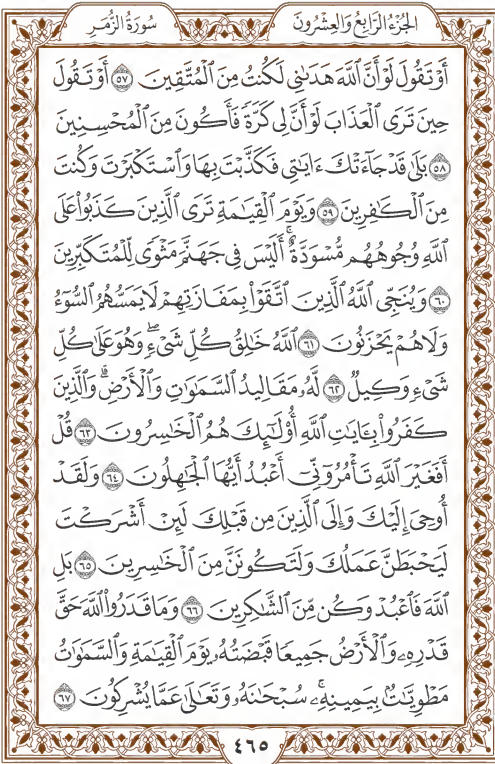 الجُزْءُ الرَّابِعُ وَالعِشْرُونَ سُورَةُ الزُّمَرِ
أَوْ تَقُولَ لَوْ أَنَّ ٱللَّهَ هَدَىٰنِى لَكُنتُ مِنَ ٱلْمُتَّقِينَ ٥٧ أَوْ تَقُولَ
حِينَ تَرَى ٱلْعَذَابَ لَوْ أَنَّ لِى كَرَّةً فَأَكُونَ مِنَ ٱلْمُحْسِنِينَ
٥٨ بَلَىٰ قَدْ جَآءَتْكَ ءَايَٰتِى فَكَذَّبْتَ بِهَا وَٱسْتَكْبَرْتَ وَكُنتَ
مِنَ ٱلْكَٰفِرِينَ ٥٩ وَيَوْمَ ٱلْقِيَٰمَةِ تَرَى ٱلَّذِينَ كَذَبُوا۟ عَلَى
ٱللَّهِ وُجُوهُهُم مُّسْوَدَّةٌ ۚ أَلَيْسَ فِى جَهَنَّمَ مَثْوًى لِّلْمُتَكَبِّرِينَ
٦٠ وَيُنَجِّى ٱللَّهُ ٱلَّذِينَ ٱتَّقَوْا۟ بِمَفَازَتِهِمْ لَا يَمَسُّهُمُ ٱلسُّوٓءُ
وَلَا هُمْ يَحْزَنُونَ ٦١ ٱللَّهُ خَٰلِقُ كُلِّ شَىْءٍ ۖ وَهُوَ عَلَىٰ كُلِّ
شَىْءٍ وَكِيلٌ ٦٢ لَّهُۥ مَقَالِيدُ ٱلسَّمَٰوَٰتِ وَٱلْأَرْضِ ۗ وَٱلَّذِينَ
كَفَرُوا۟ بِـَٔايَٰتِ ٱللَّهِ أُو۟لَٰٓئِكَ هُمُ ٱلْخَٰسِرُونَ ٦٣ قُلْ
أَفَغَيْرَ ٱللَّهِ تَأْمُرُوٓنِّىٓ أَعْبُدُ أَيُّهَا ٱلْجَٰهِلُونَ ٦٤ وَلَقَدْ
أُوحِىَ إِلَيْكَ وَإِلَى ٱلَّذِينَ مِن قَبْلِكَ لَئِنْ أَشْرَكْتَ
لَيَحْبَطَنَّ عَمَلُكَ وَلَتَكُونَنَّ مِنَ ٱلْخَٰسِرِينَ ٦٥ بَلِ
ٱللَّهَ فَٱعْبُدْ وَكُن مِّنَ ٱلشَّٰكِرِينَ ٦٦ وَمَا قَدَرُوا۟ ٱللَّهَ حَقَّ
قَدْرِهِۦ وَٱلْأَرْضُ جَمِيعًا قَبْضَتُهُۥ يَوْمَ ٱلْقِيَٰمَةِ وَٱلسَّمَٰوَٰتُ
مَطْوِيَّٰتٌۢ بِيَمِينِهِۦ ۚ سُبْحَٰنَهُۥ وَتَعَٰلَىٰ عَمَّا يُشْرِكُونَ ٦٧
٤٦٥